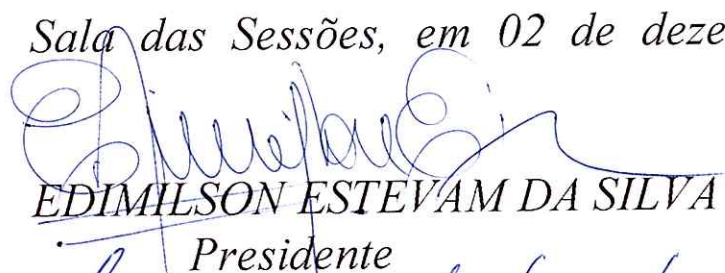 Sala das Sessões, em 02 de deze
EDIMILSON ESTEVAM DA SILVA
Presidente